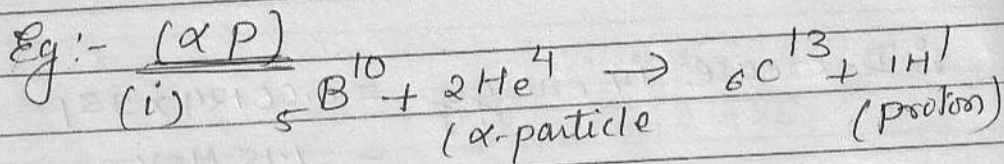 Eg:- (α P)
(i) ₅B¹⁰ + ₂He⁴ → ₆C¹³ + ₁H¹
(α-particle (proton)